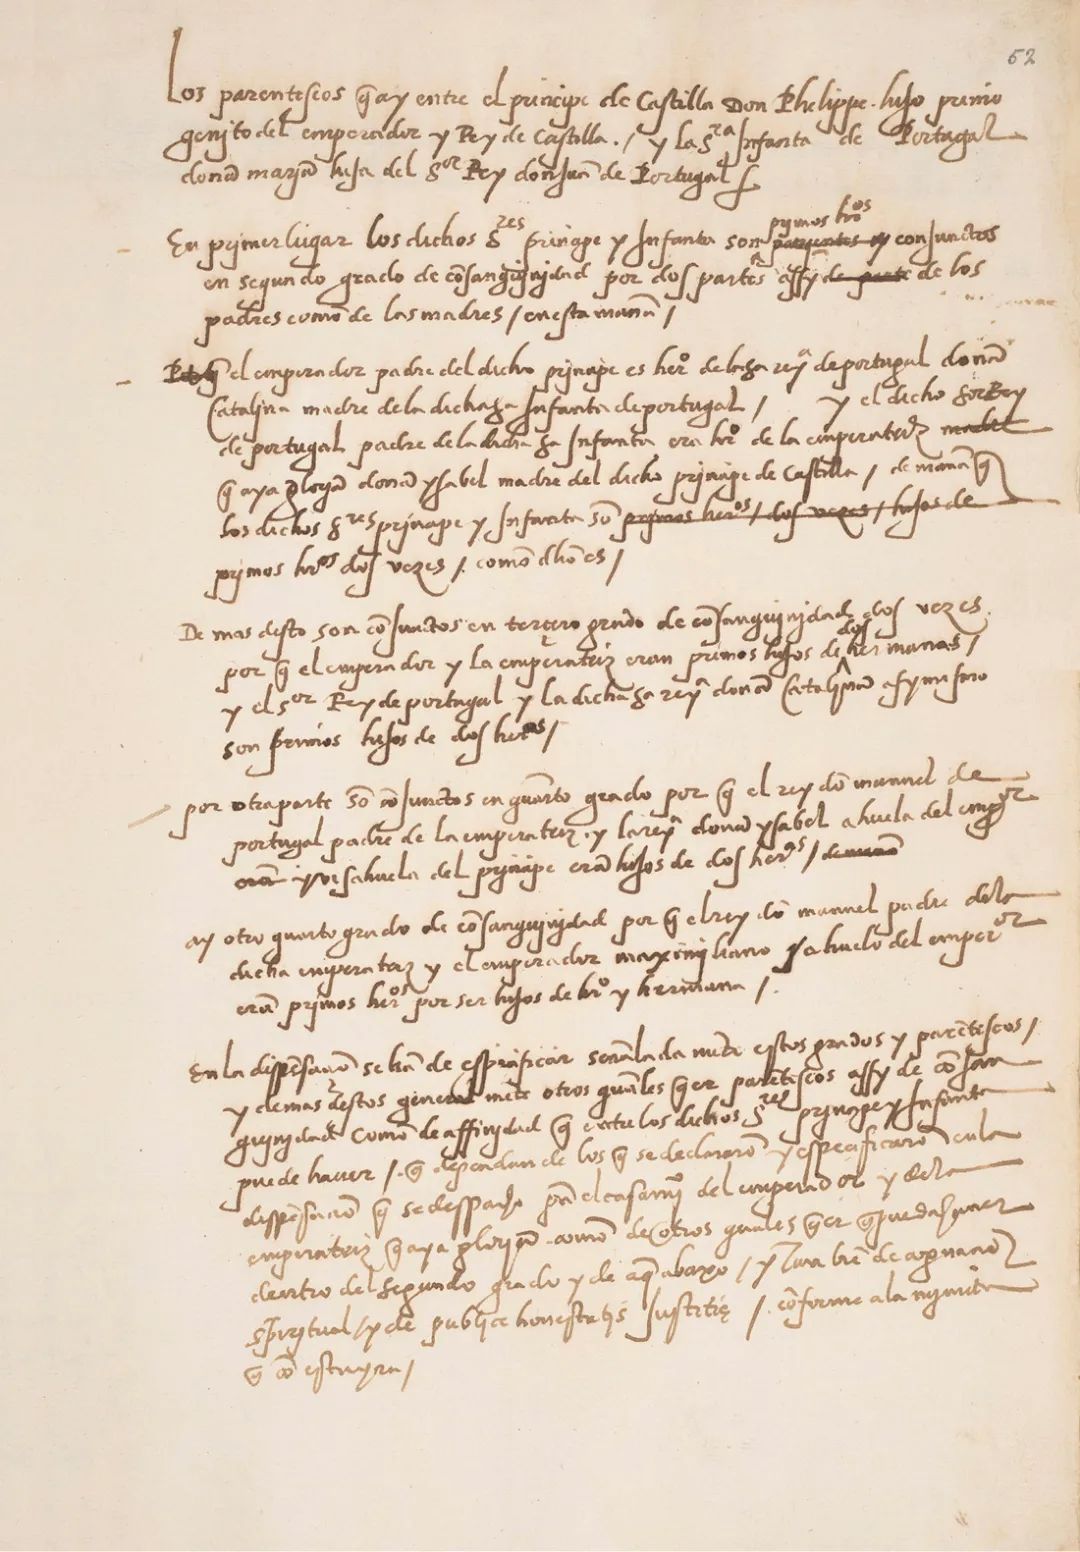 62
Los parentescos q̃ ay entre el principe de Castilla Don Phelippe hijo primo
genito del emperador y Rey de Castilla . / y la s.ra Infanta de Portugal
doña maria hija del s.or Rey don juã de Portugal /
En primer lugar los dichos s.res principe y Infanta son primos hr̃os parientes y conjunctos
en segundo grado de cõsanguinidad por dos partes assy de parte de los
padres como de las madres / en esta manã /
q̃ el emperador padre del dicho principe es her.o de la sa reyª de portugal doña
Catalina madre de la dicha sa Infanta de portugal / y el dicho sor Rey
de portugal padre de la dicha sa Infanta era hr.o de la emperatriz madre
q̃ aya gloria doña ysabel madre del dicho principe de Castilla / de manã q̃
los dichos s.res principe y Infanta sõ primos her.os / dos vezes / hijos de
primos hr.os dos vezes / como dho es /
De mas desto son cõjunctos en tercero grado de cõsanguinidad dos vezes
por q̃ el emperador y la emperatriz eran primos hijos de dos hermanas /
y el s.or Rey de portugal y la dicha sa reyª doña Catalina asy mismo
son primos hijos de dos her.as /
por otra parte sõ cõjunctos en quarto grado por q̃ el rey dõ manuel de
portugal padre de la emperatriz y la reyª doña ysabel ahuela del emp.or
erã y visahuela del principe erã hijos de dos her.os /
ay otro quarto grado de cõsanguinidad por q̃ el rey dõ manuel padre dela
dicha emperatriz y el emperador maximiliano ahuelo del emper.or
erã primos her.os por ser hijos de hr.o y hermana /.
En la dispẽsaciõ se hã de espicificar señalada mẽte estos grados y parẽtescos /
y demas destos general mẽte otros quales q̃er parẽtescos assy de cõsan
guinidad como de affinidad q̃ entre los dichos s.res principe y Infanta
puede hauer / . q̃ dependan de los q̃ se declararõ y especificarõ en la
dispẽsaciõ q̃ se despacho pã el casami.o del emperador y dela
emperatriz q̃ aya gloria como de otros quales q̃er q̃ pueda hauer
dentro del segundo grado y de aq̃ abaxo / y tan biẽ de cognaciõ
spiritual / y de publice honestatis Justitię / cõforme a la minuta
q̃ cõ esta yra /